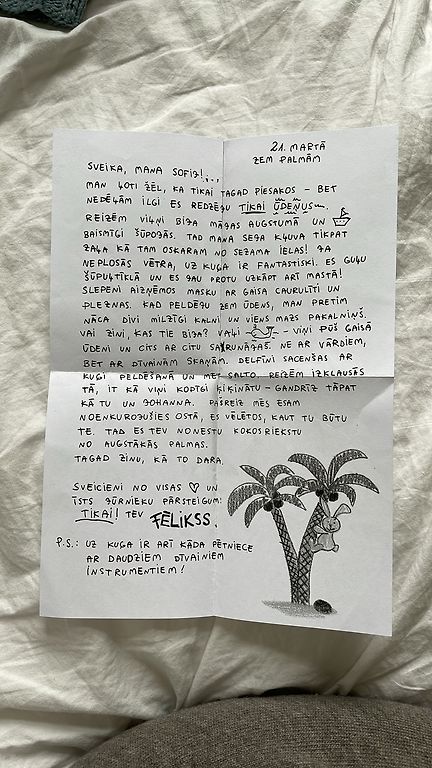 21. MARTĀ
ZEM PALMĀM
SVEIKA, MANA SOFIJA!...,
MAN ĻOTI ŽĒL, KA TIKAI TAGAD PIESAKOS – BET
NEDĒĻĀM ILGI ES REDZĒJU TIKAI ŪDEŅUS
REIZĒM VIĻŅI BIJA MĀJAS AUGSTUMĀ UN
BAISMĪGI ŠŪPOJĀS. TAD MANA SEJA KĻUVA TIKPAT
ZAĻA KĀ TAM OSKARAM NO SEZAMA IELAS! JA
NEPLOSĀS VĒTRA, UZ KUĢA IR FANTASTISKI. ES GUĻU
ŠŪPUĻTĪKLĀ UN ES JAU PROTU UZKĀPT ARĪ MASTĀ!
SLEPENI AIZŅĒMOS MASKU AR GAISA CAURULĪTI UN
PLEZNAS. KAD PELDĒJU ZEM ŪDENS, MAN PRETIM
NĀCA DIVI MILZĪGI KALNI UN VIENS MAZS PAKALNIŅŠ.
VAI ZINI, KAS TIE BIJA? VAĻI – VIŅI PŪŠ GAISĀ
ŪDENI UN CITS AR CITU SARUNĀJAS. NE AR VĀRDIEM,
BET AR DĪVAINĀM SKAŅĀM. DELFĪNI SACENŠAS AR
KUĢI PELDĒŠANĀ UN MET SALTO. REIZĒM IZKLAUSĀS
TĀ, IT KĀ VIŅI KOPĪGI ĶIĶINĀTU – GANDRĪZ TĀPAT
KĀ TU UN JOHANNA. PAŠREIZ MĒS ESAM
NOENKUROJUŠIES OSTĀ, ES VĒLĒTOS, KAUT TU BŪTU
TE. TAD ES TEV NONESTU KOKOSRIEKSTU
NO AUGSTĀKĀS PALMAS.
TAGAD ZINU, KĀ TO DARA.
SVEICIENI NO VISAS UN
ĪSTS JŪRNIEKU PĀRSTEIGUMS
TIKAI! TEV FĒLIKSS.
P.S.: UZ KUĢA IR ARĪ KĀDA PĒTNIECE
AR DAUDZIEM DĪVAINIEM
INSTRUMENTIEM!